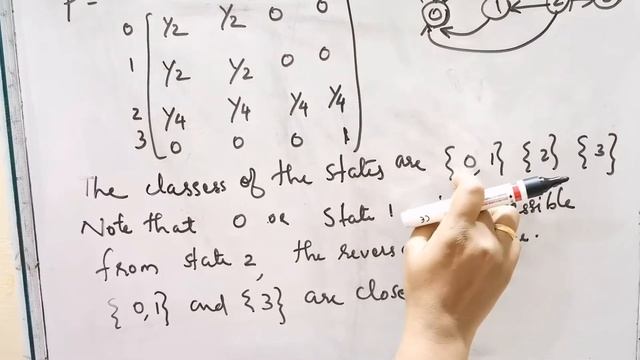 P =
0 1/2 1/2 0 0
1 1/2 1/2 0 0
2 1/4 1/4 1/4 1/4
3 0 0 0 1
0 1 2
The classes of the states are {0,1} {2} {3}
Note that 0 or State 1 ssible
from state 2, the revers e.
{0,1} and {3} are close
CE